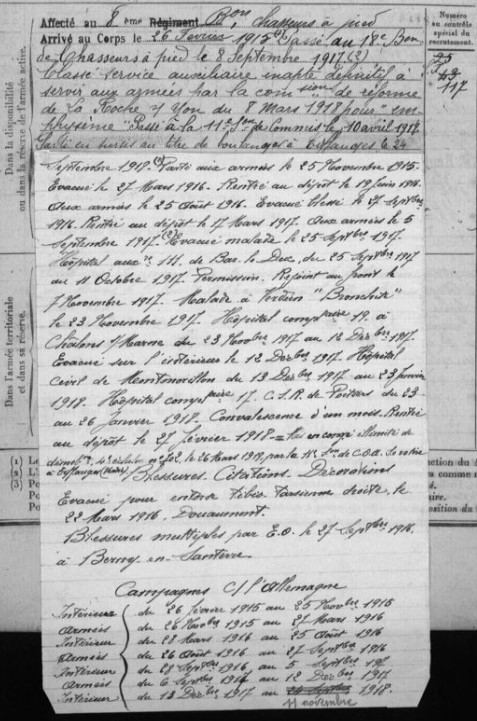 Affecté au 8 ème Régiment Bon Chasseurs à pied
Numéro
au contrôle
spécial du
recrutement.
Arrivé au Corps le 26 Fevrier 1915 (1) Passé au 18e Bon
de Chasseurs à pied le 8 Septembre 1917 (3)
Classé service auxiliaire inapte définitif à
servir aux armées par la comsion de réforme
de La Roche s/ Yon du 8 Mars 1918 pour "em
physème" Passé à la 11e Son de Commis le 10 avril 1918
117
Dans la disponibilité
ou dans la réserve de l'armée active.
Septembre 1918 (1) Parti aux armées le 25 Novembre 1915.
Evacué le 27 Mars 1916. Rentré au dépôt le 19 Juin 1916.
Aux armées le 25 Août 1916. Evacué blessé le 27 Septbre
1916. Rentré au dépôt le 17 Mars 1917. Aux armées le 5
Septembre 1917. (2) Evacué malade le 25 Septbre 1917.
Hôpital de Bar le Duc, du 25 Septbre 1917
au 11 Octobre 1917. Permission. Rejoint au front le
7 Novembre 1917. Malade à Verdun "Bronchite"
le 23 Novembre 1917. Hôpital complre 19 à
Chalons s/ Marne du 23 Novbre 1917 au 12 Décbre 1917.
Evacué sur l'intérieur le 12 Décbre 1917. Hôpital
Civil de Montmorillon du 13 Décbre 1917 au 23 Janvier
1918. Hôpital complre 17. de Poitiers du 23
au 26 Janvier 1918. Convalescence d'un mois. Rentré
au dépôt le 27 février 1918
Dans l'armée territoriale
et dans sa réserve.
Blessures. Citations. Décorations
Evacué pour entorse tibio tarsienne droite, le
22 Mars 1916. Douaumont.
Blessures multiples par E.O. le 27 Septbre 1916.
à Berny-en-Santerre
Campagnes C/ l'Allemagne
Intérieur du 26 février 1915 au 25 Novbre 1915
Armées du 26 Novbre 1915 au 27 Mars 1916
Intérieur du 28 Mars 1916 au 25 Août 1916
Armées du 26 Août 1916 au 27 Septbre 1916
Intérieur du 28 Septbre 1916, au 5 Septbre
Armées du 6 Septbre au 12 Décbre 1917
Intérieur du 13 Décbre 1917 au 1918.
11 novembre